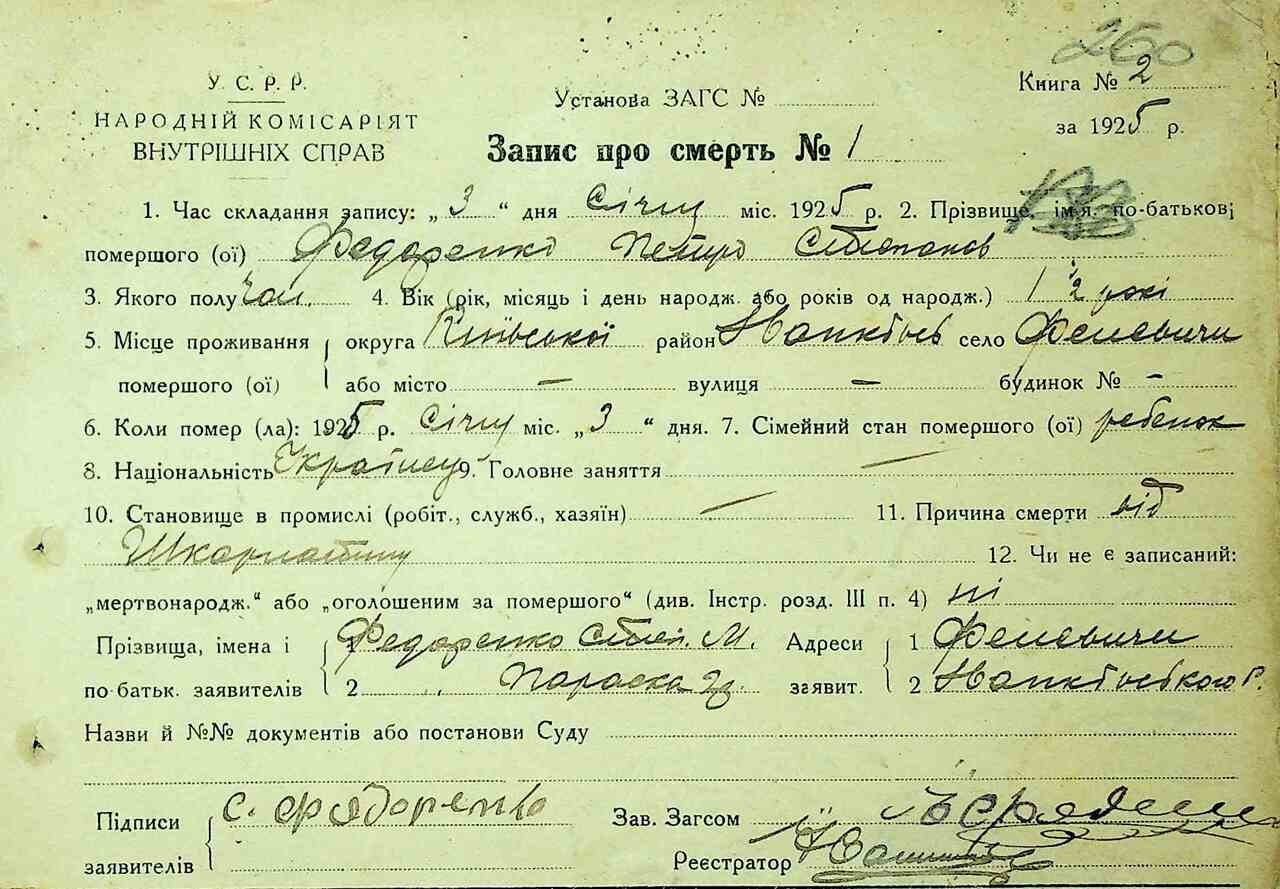 260
У. С. Р. Р.
НАРОДНІЙ КОМІСАРІЯТ
ВНУТРІШНІХ СПРАВ
Установа ЗАГС №
Книга № 2
за 1925 р.
Запис про смерть № 1
1. Час складання запису: „ 3 “ дня Січня міс. 1925 р. 2. Прізвище, ім'я, по-батькові
помершого (ої) Федоренко Петро Степанов
3. Якого полу чол. 4. Вік (рік, місяць і день народж. або років од народж.) 1 1/2 рокі
5. Місце проживання округа Київської район село Феневичи
помершого (ої) або місто — вулиця — будинок № -
6. Коли помер (ла): 1925 р. Січня міс. „ 3 “ дня. 7. Сімейний стан помершого (ої) ребенок
8. Національність Українец 9. Головне заняття —
10. Становище в промислі (робіт., служб., хазяїн) — 11. Причина смерти від
Шкарлатини 12. Чи не є записаний:
„мертвонародж.“ або „оголошеним за помершого“ (див. Інстр. розд. III п. 4) ні
Прізвища, імена і 1 Федоренко Степ. М. Адреси 1 Феневичи
по-батьк. заявителів 2 „ Параска заявит. 2
Назви й №№ документів або постанови Суду
Підписи С. Фядоренко Зав. Загсом
заявителів Реєстратор